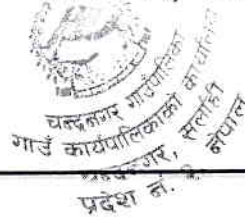 चन्द्रनगर गाउँपालिका
गाउँ कार्यपालिकाको कार्यालय
नगर, सर्लाही
प्रदेश नं.
नेपाल